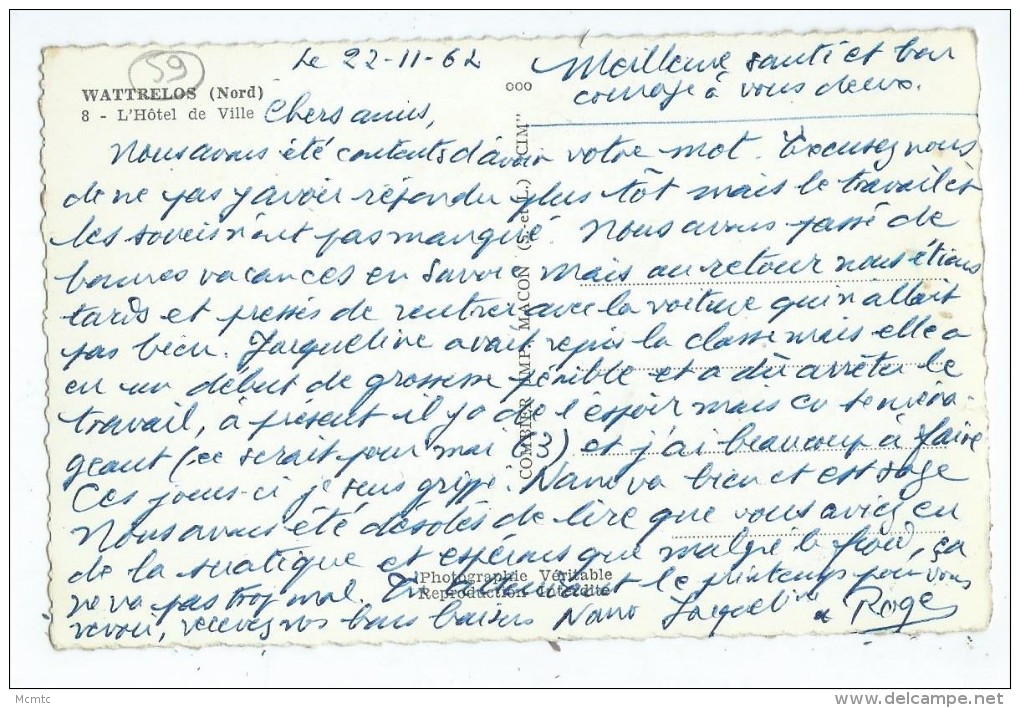 59
WATTRELOS (Nord)
8 - L'Hôtel de Ville
Le 22-11-62
Chers amis,
Nous avons été contents d'avoir votre mot. Excusez nous
de ne pas y avoir répondu plus tôt mais le travail et
les soucis n'ont pas manqué. Nous avons passé de
bonnes vacances en Savoie mais au retour nous étions
tards et pressés de rentrer avec la voiture qui n'allait
pas bien. Jacqueline avait repris la classe mais elle a
eu un début de grossesse pénible et a dû arrêter le
travail, à présent il y a de l'espoir mais en se ména-
geant (ce serait pour mai 63) et j'ai beaucoup à faire
Ces jours-ci je suis grippé. Nano va bien et est sage
Nous avons été désolés de lire que vous aviez eu
de la sciatique et espérons que malgré le froid, ça
ne va pas trop mal. En attendant le printemps pour vous
revoir, recevez nos bons baisers Nano Jacqueline
& Roger
ooo
Meilleure santé et bon
courage à vous deux.
COMBIER IMP. MACON (S.-et-L.) "CIM"
Photographie Véritable
Reproduction Interdite
Mcmtc
www.delcampe.net